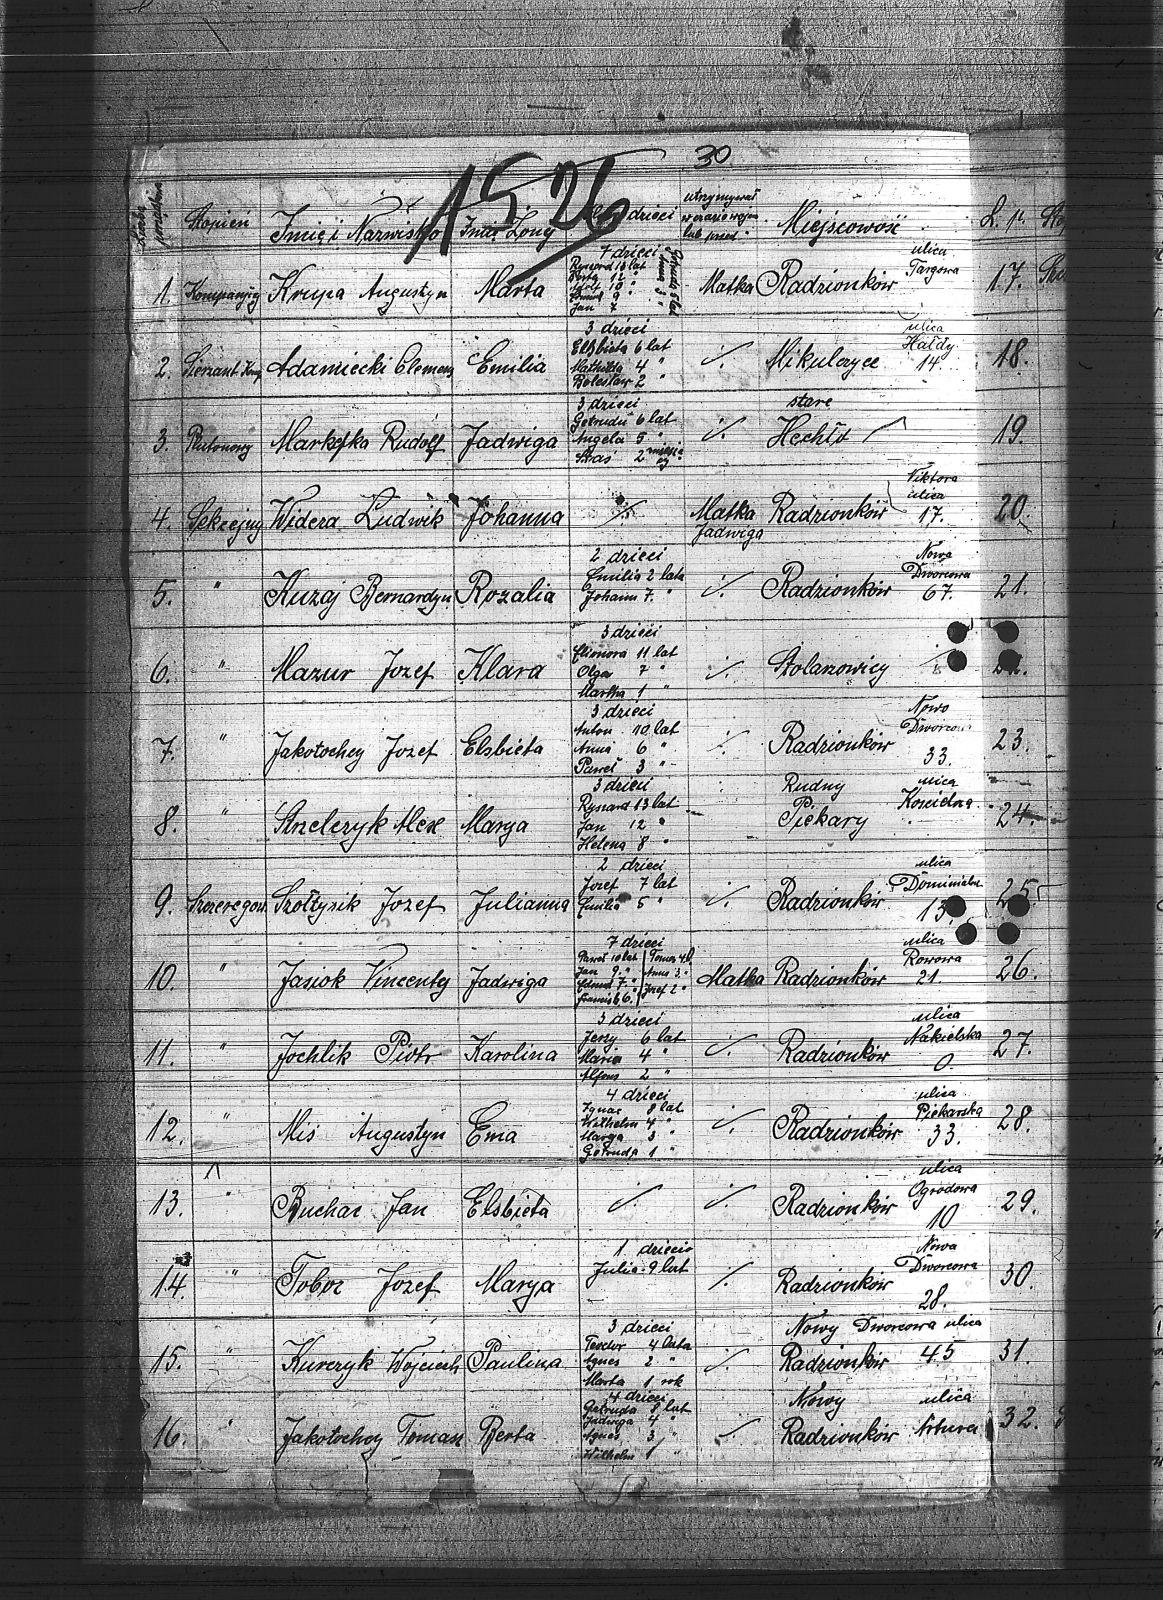 30
1526
Liczba porządkowa
Stopień Imię i Nazwisko Imię Żony dzieci utrzymywał w czasie wojny lub przed Miejscowość L. p.
1. Kompanijny Krupa Augustyn Marta 7 dzieci Matka Radzionków ulica Targowa 17.
Ryszard 10 lat
Jan 7
2. Sierżant Komp Adamiecki Clemens Emilia 3 dzieci ./. Mikulczyce ulica Hałdy 14. 18.
Elżbieta 6 lat
Mathilda 4 "
Bolesław 2 "
3. Plutonowy Markefka Rudolf Jadwiga 3 dzieci ./. stare Hechło 19.
Getruda 6 lat
Angela 5 "
Staś 2 miesięcy
4. Sekcejny Widera Ludwik Johanna ./. Matka Jadwiga Radzionków Viktora ulica 17. 20.
5. " Kuzaj Bernardyn Rozalia 2 dzieci ./. Radzionków Nowa Dworcowa 67. 21.
Emilia 2 lata
Johann 7. "
6. " Mazur Jozef Klara 3 dzieci ./. Stolarzowicy
Elionora 11 lat
Olga 7 "
Martha 1 "
7. " Jakotochcy Jozef Elsbieta 3 dzieci ./. Radzionków Nowo Dworcowa 33. 23.
Anton 10 lat
Anna 6 "
Paweł 3 "
8. " Strzelczyk Alex Marya 3 dzieci Rudny Piekary ulica Kościelna 24
Ryszard 13 lat
Jan 12 "
Helena 8 "
9. Szeregow. Szołtysik Jozef Julianna 2 dzieci ./. Radzionków ulica Dominialna 13. 25
Jozef 7 lat
Emilia 5 "
10. " Jasiok Vincenty Jadwiga 7 dzieci Matka Radzionków ulica Rowowa 21. 26.
Paweł 10 lat Tomas 4
Jan 9. " Anna 3. "
Edmud 7. " Jozef 2 "
Francisk 6. "
11. " Jochlik Piotr Karolina 3 dzieci ./. Radzionków ulica Nakielska 0. 27.
Jerzy 6 lat
Maria 4 "
Alfons 2 "
12. " Mis Augustyn Ema 4 dzieci ./. Radzionków ulica Piekarska 33. 28.
Ignac 8 lat
Wilhelm 4 "
Marga 3 "
Getruda 1 "
13. " Buchac Jan Elsbieta ./. ./. Radzionków ulica Ogrodowa 10 29.
14. " Tobor Jozef Marya 1 dziecio ./. Radzionków Nowa Dworcowa 28. 30.
Julia 9 lat
15. " Kurczyk Wojciech Paulina 3 dzieci ./. Nowy Dworcowa ulica Radzionków 45 31.
Teodor 4 lata
Agnes 2 "
Marta 1 rok
16. " Jakotochcy Tomasz Berta 4 dzieci ./. Nowy Radzionków ulica Artura 32.
Getruda 8 lat
Jadwiga 4 "
Agnes 3 "
Wilhelm 1 "